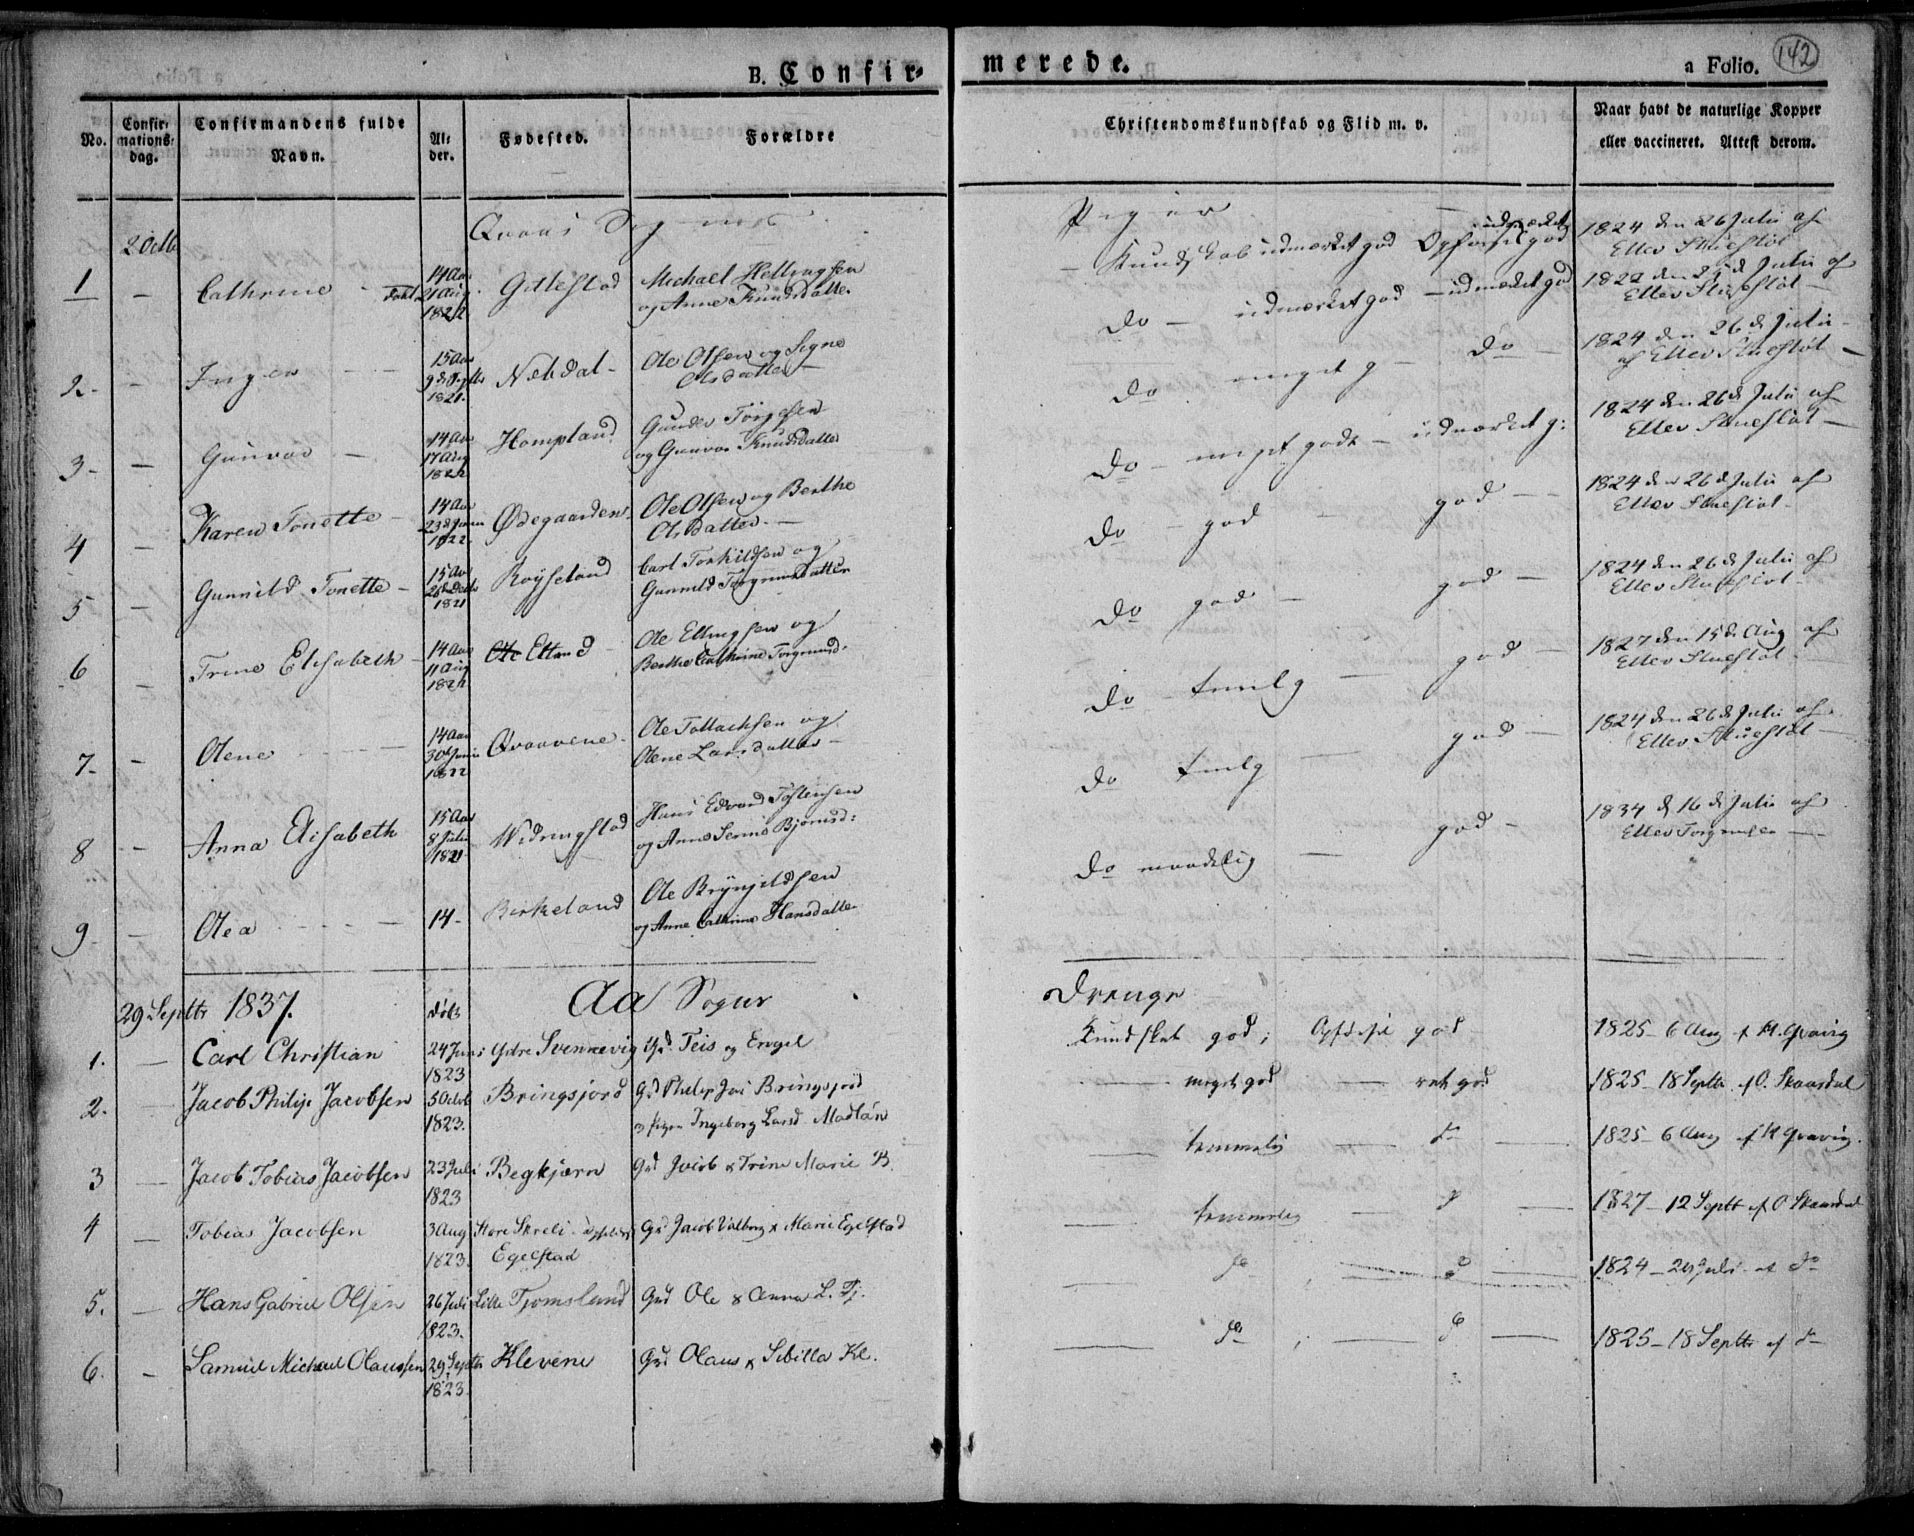 B. Confir-
merede.
a Folio. 142
No.
Confir-
mations-
dag.
Confirmandens fulde
Navn.
Al-
der.
Fødested.
Forældre
Christendomskundskab og Flid m. v.
Naar havt de naturlige Kopper
eller vaccineret. Attest derom.
Qvaas Sogn
Piger
2 Octb
1 — Cathrine
14 Aar
21 Aug.
1822
Gitlestad
Michael Hellingsen
og Anne Knudsdatter
Kundskab udmærket god Opførsel udmærket god
1824 den 26 Julii af
Ellev Stuestøl
2 - - Inger
15 Aar
9 d Septbr
1821.
Nebdal -
Ole Olsen og Signe
Olsdatter -
Do - udmærket god - udmærket god
1822 den 25 d Julii af
Ellev Stuestøl -
3 - - Gunvor -
14 Aar
17 Aug
1822
Hompland
Gunder Torgesen
og Gunvor Knudsdatter
Do meget g - Do -
1824 den 26 d Julii -
af Ellev Stuestøl -
4 - Karen Tonette -
14 Aar
23 d Junii
1822
Ødegaarden
Ole Olsen og Berthe
Olsdatter. -
Do - meget godt - udmærket g:
1824 den 26 d Julii af
Ellev Stuestøl -
5 - Gunnild Tonette -
15 Aar
1821
Røyseland
Carl Torkildsen og
Gunnild Torgrimsdatter
Do - god - god -
1824 den 26 d Julii af
Ellev Stuestøl -
6 - Trine Elisabeth
14 Aar
11 Aug
1822
Ole Eltand
Ole Ellingsen og
Berthe Cathrine Torgrimsd.
Do god - god -
1824 den 26 d Julii af
Ellev Stuestøl -
7 - - Olene -
14 Aar
30 d Junii
1822
Qvaavene -
Ole Tollachsen og
Olene Larsdatter -
Do temlg - god -
1827 den 15 d. Aug af
Ellev Stuestøl -
8 - Anna Elisabeth
15 Aar
8 Julii
1821
Widringstad
Hans Edvard Tostensen
og Anne Serine Bjørnsd:
Do temlg - god -
1824 den 26 d Julii af
Ellev Stuestøl -
9 - - Olea -
14 -
Birkeland
Ole Brynjildsen
og Anne Cathrine Hansdatter
Do maadelig - god -
1834 d 16 d Julii af
Ellev Torgrimsen -
29 Septbr 1837.
døbt
Aa Sogn
Drenge
1. — Carl Christian
24 Juni
1823
Ydre Svennevig
Gd. Teis og Engel
Kundskab god; Opførsel god
1825 - 6 Aug af H. Qvavig
2. — Jacob Philip Jacobsen
5 Octob
1823.
Bringsjord
Gd Philip Jac Bringsjord
Ingeborg Larsd Madlan
— meget god — ret god
1825 - 18 Septbr af O. Skaardal
3 — Jacob Tobias Jacobsen
23 Juli
1823
Begkjærn
Gd Jacob & Trine Marie B.
— temmelig — do —
1825 - 6 Aug af H Qvavig.
4 — Tobias Jacobsen
3 Aug
1823.
Store Skreli
Egelstad
Gd Jacob Valborg & Marie Egelstad
— temmelig
1827 - 12 Septbr af O Skaardal
5. — Hans Gabriel Olsen
26 Juli
1823.
Lille Tjomsland
Gd Ole & Anna L. Tj.
1824 - 26 Juli af do
6. - Samuel Michael Olaussen
29 Septbr
1823.
Klevene
Gd Olaus & Sibilla Kl.
1825 - 18 Septbr af do